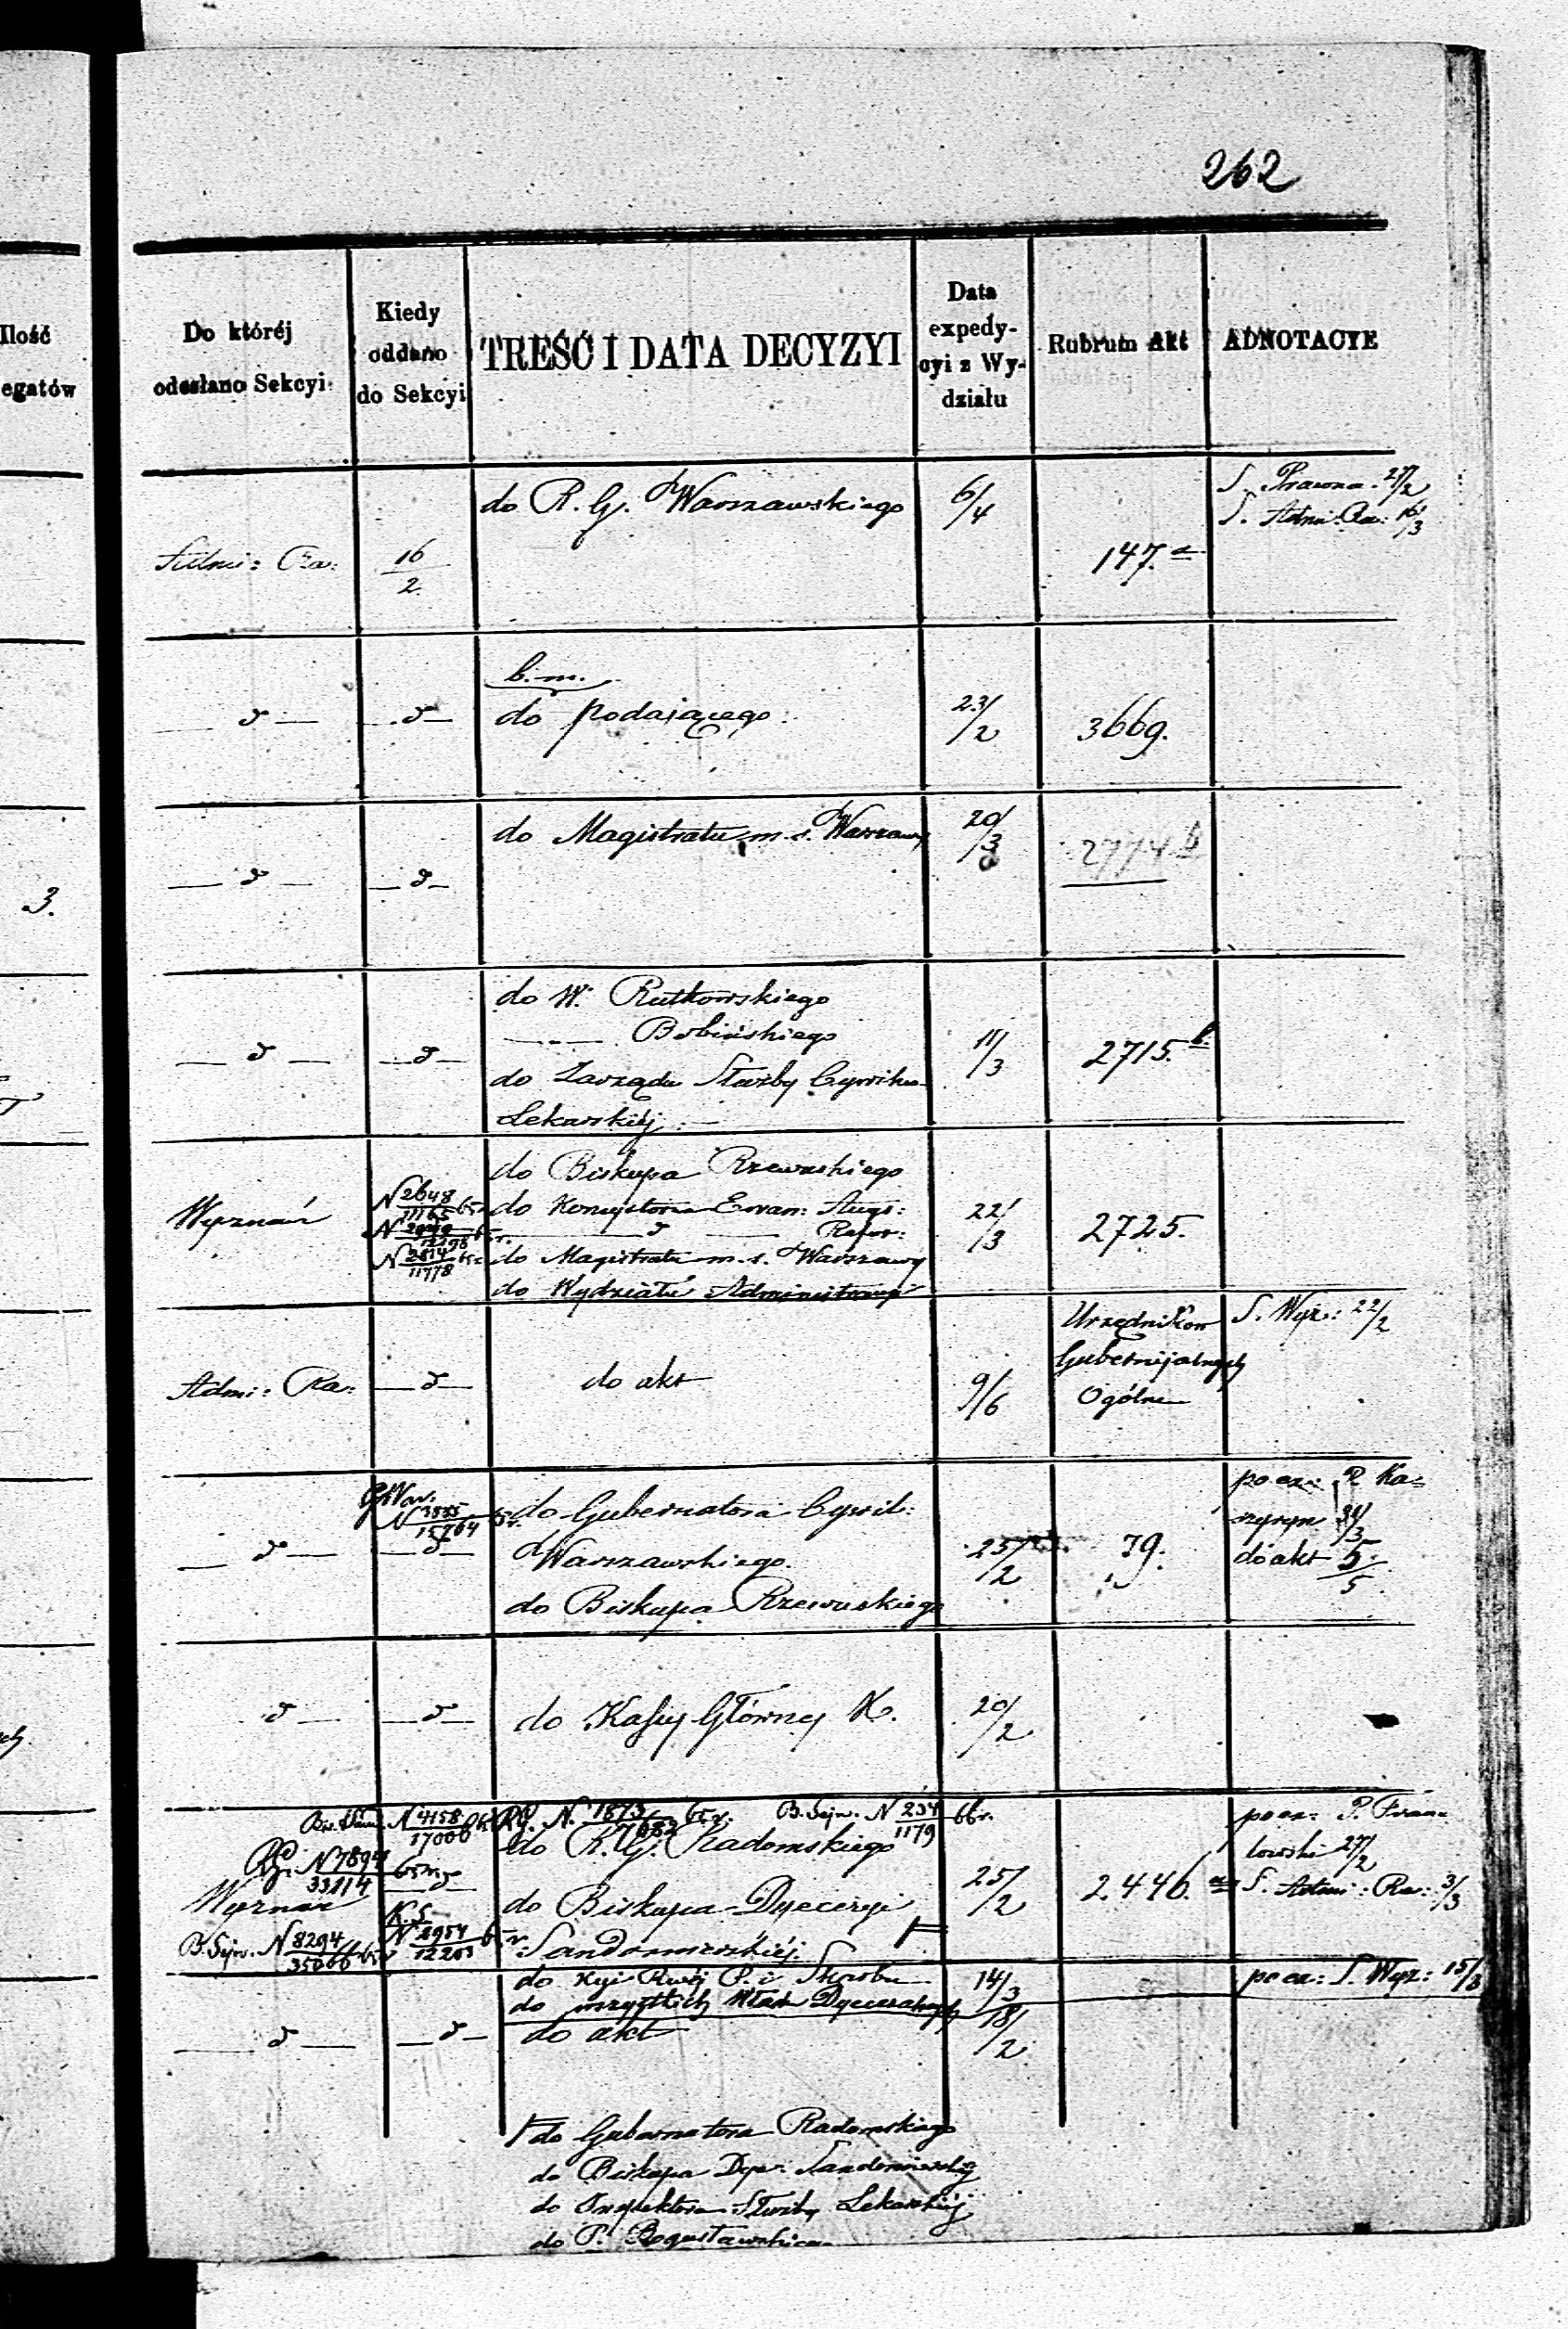 262
Ilość
egatów
Do któréj
odesłano Sekcyi
Kiedy
oddano
do Sekcyi
TREŚĆ I DATA DECYZYI
Data
expedy-
cyi z Wy-
działu
Rubrum Akt
ADNOTACYE
do R. G. Warszawskiego
6/4
S. Prawna 27/2
S. Admi: Ra: 16/3
Admi: Ra:
16/2
147. a
b. m.
— d —
— d —
do podającego
23/2
3669.
do Magistratu m. s. Warszawy
20/3
2774 b
— d —
— d —
3.
do W. Rutkowskiego
— Bobińskiego
— d —
— d —
11/3
2715. b
do Zarządu Służby Cywilno
Lekarskiéj
do Biskupa Rzewuskiego
Wyznań
N 2648/11165
do Konsystorza Ewan: Augs:
— d — Refor:
22/3
2725.
N 2814/11778
do Magistratu m. s. Warszawy
do Wydziału Administracyi
Urzędników
Gubernijalnych
Ogólne
S. Wyz: 22/2
Admi: Ra:
— d —
do akt
9/6
do Gubernatora Cywil:
Warszawskiego
do Biskupa Rzewuskiego
— d —
— d —
25/2
79.
po ex: P. Ka=
do akt 5/5
— d —
— d —
do Kassy Głównej K.
20/2
N 4158/17000
R.G. N. 1873
B. Sejn. N 234/1179
N 7894/33114
do R. G. Radomskiego
po ex: P. Fran=
27/2
Wyznań
— d —
do Biskupa Dyecezyi
Sandomierskiéj
25/2
2446. a
S. Admi: Ra: 3/3
B. Sejn. N 8294
do Kyi Rwéj P. i Skarbu
14/3
po ex: S. Wyz: 15/3
do wszystkich Władz Dyecezalnych
— d —
— d —
do akt
18/2
do Gubernatora Radomskiego
do Biskupa Dye: Sandomierskiéj
do Inspektora Służby Lekarskiéj
do P. Bogusławskiego